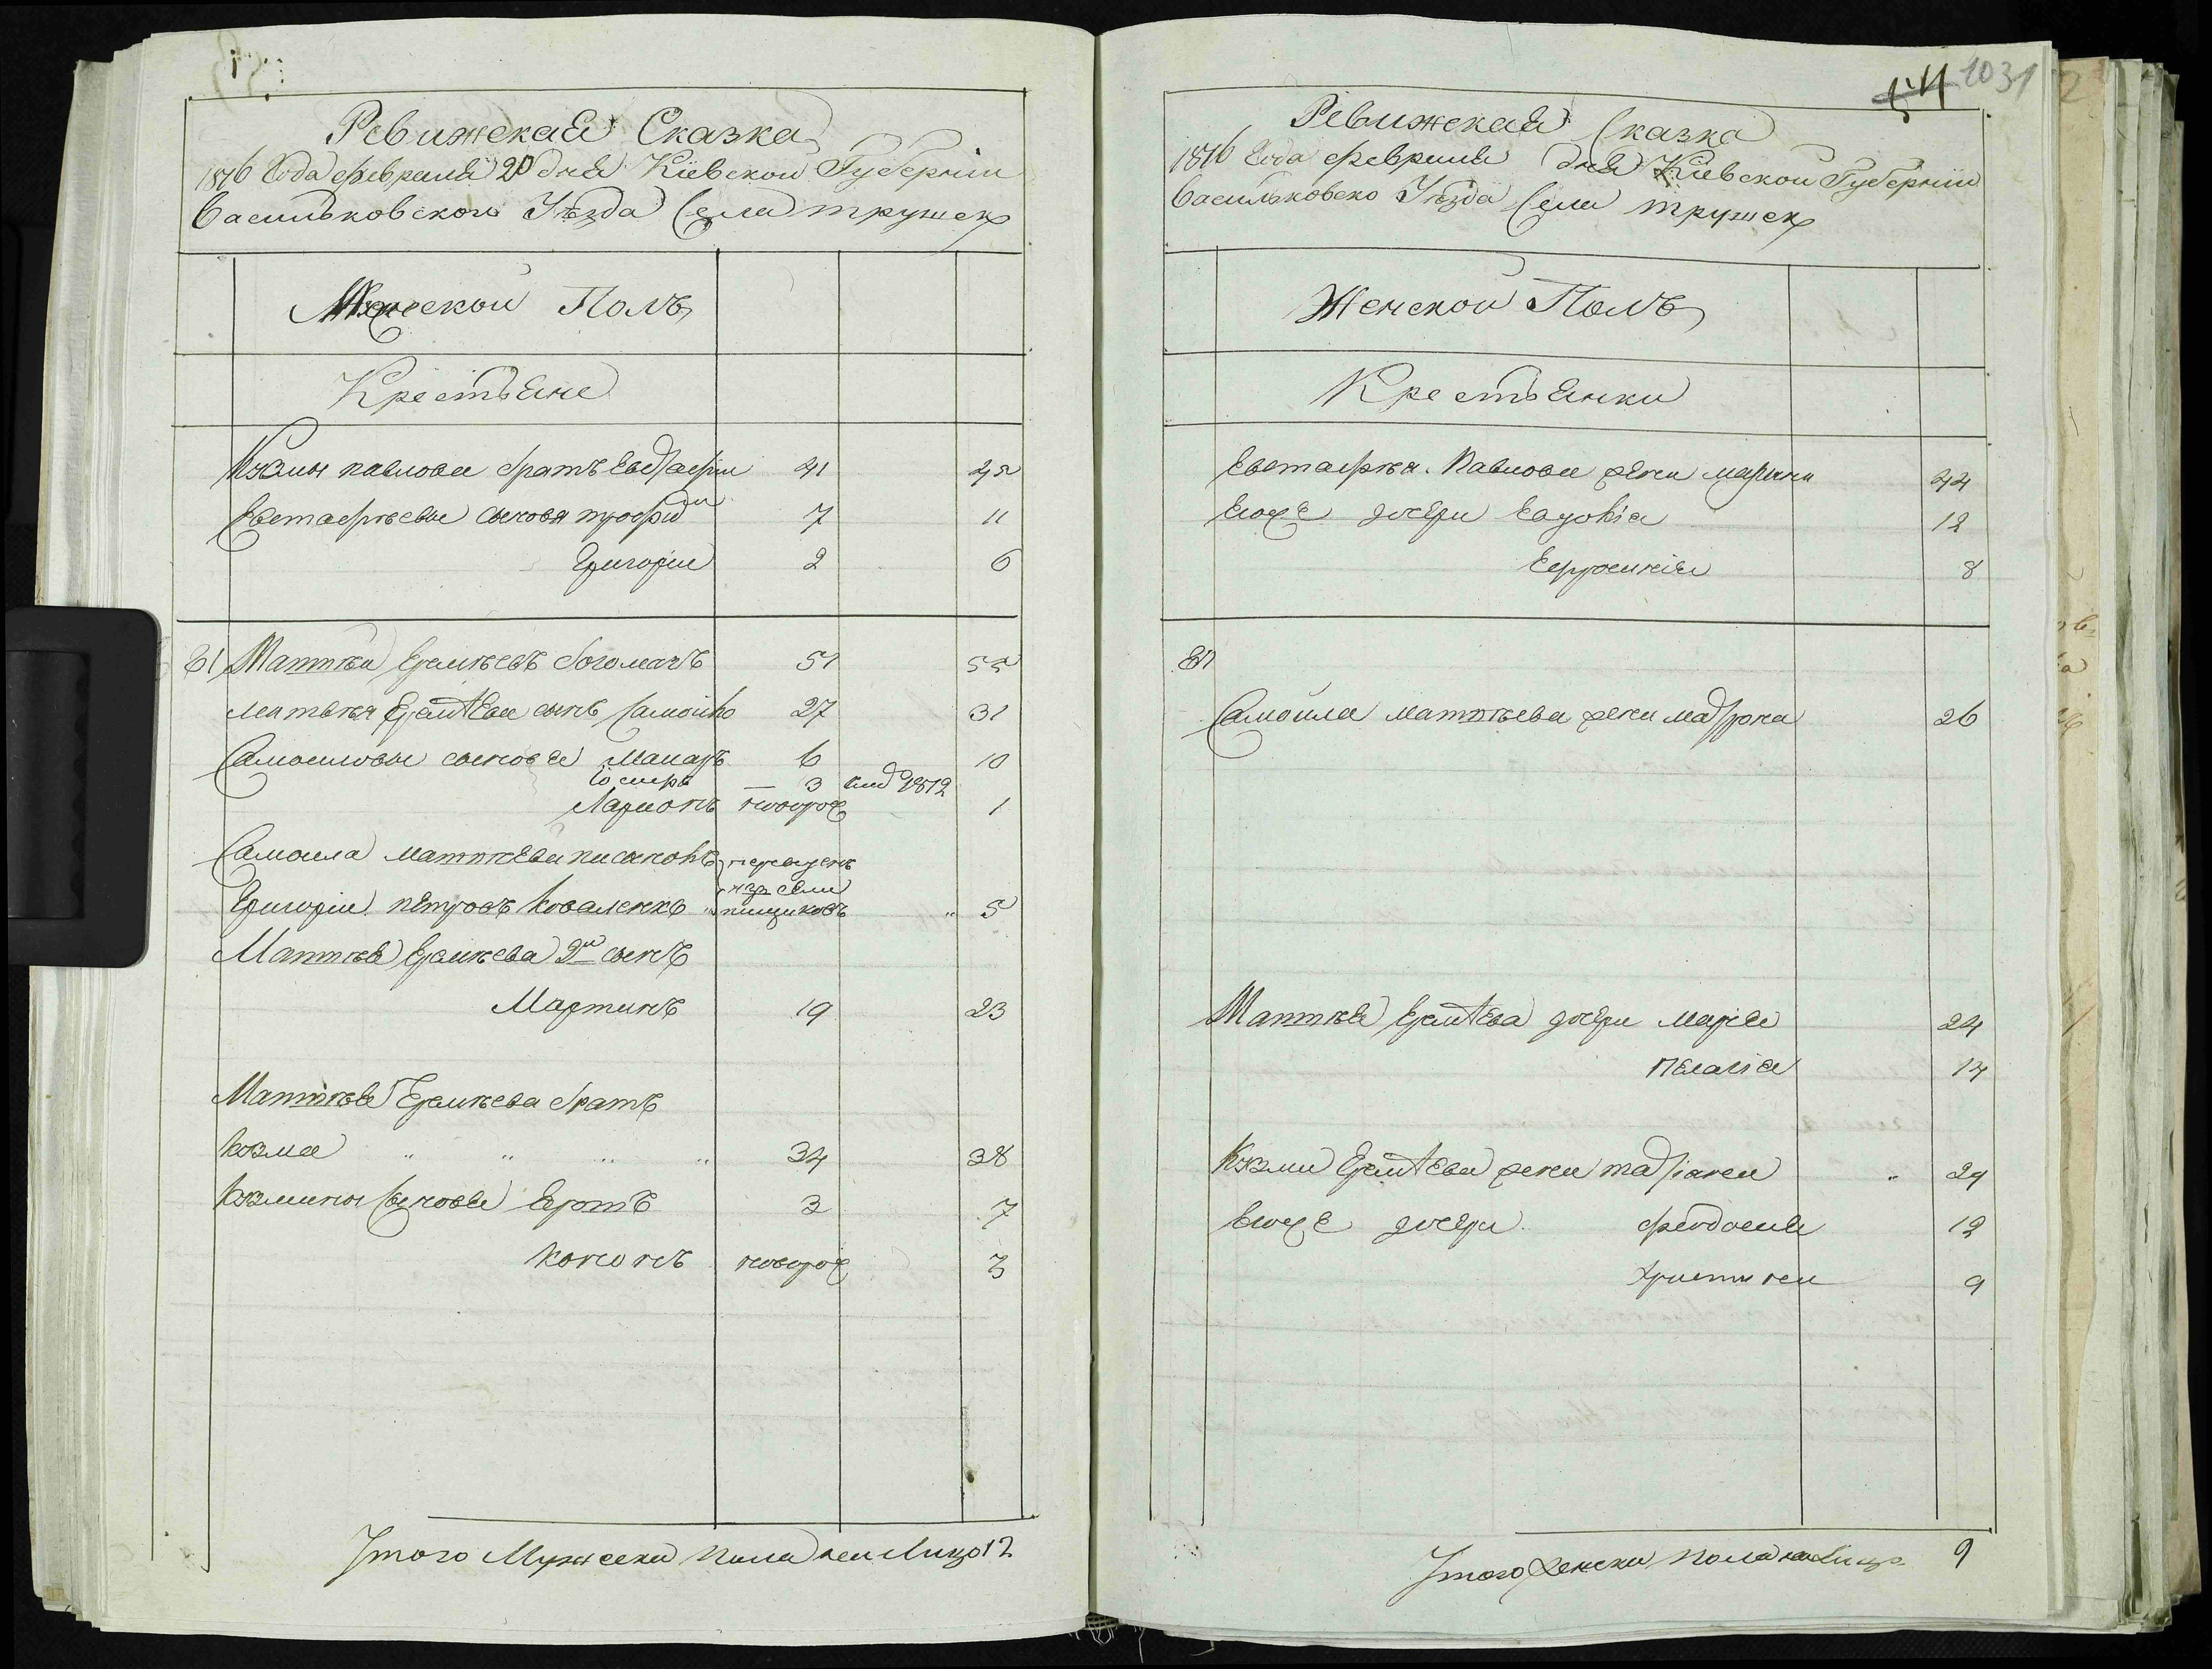 Ревижская Сказка
1816 Года февраля 20 дня Кіевской Губерніи
Васильковскои Уѣзда Села трушек
Мужескои Полъ
Крестьяне
Кузмы павлова братъ Евстафіи 41 45
Евстафіевы сыновя трофим 7 11
Григоріи 2 6
61 Матвѣи Еремѣевъ богомазъ 51 55
матвѣя Еремѣева сынъ Самойло 27 31
Самоиловы сыновья Макаръ 6 10
Іосипъ — 3 1812
Ларионъ новорож 1
Самоила матвѣева
переведенъ
изъ села
Григоріи петровъ коваленко пищиковъ " 5
Матвѣя Еремѣева 2й сынъ
Мартинъ 19 23
Матвѣя Еремѣева братъ
козма " " " " 34 38
козмины Сыновья 3 7
кононъ новорож 3
Итого Мужеска пола на лицо 12
1031
Ревижская Сказка
1816 Года февраля дня Кіевской Губерніи
Васильковско Уѣзда Села трушек
Женскои Полъ
Крестьянки
Евстафія Павлова жена марина 44
Егоже дочери Евдокія 12
Ефросинія 8
61
Самоила матвѣева жена матрона 26
Матвѣя Еремѣева дочери марія 24
Пелагія 14
Кузмы Еремѣева жена татіана " 29
Егоже дочери феодосия 12
христина 9
Итого женска пола на лицо 9